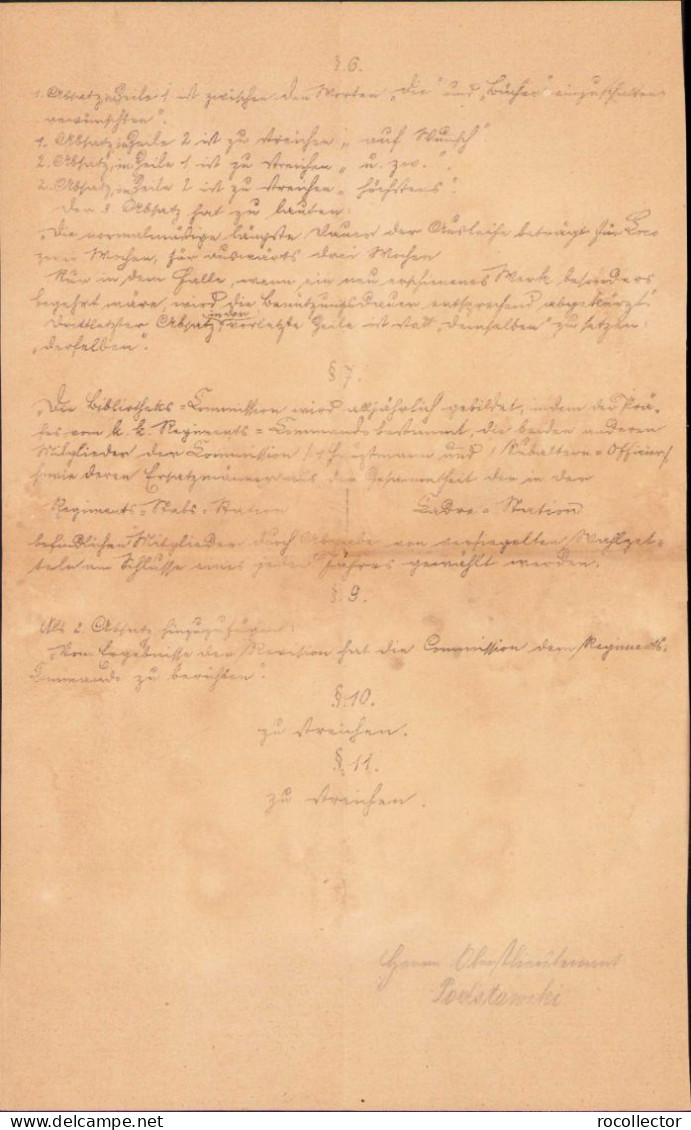 § 6.
1. Absatz, Zeile 1 ist zwischen den Worten „die“ und „Bücher“ einzuschalten
gewünschten“.
1. Absatz, in Zeile 2 ist zu streichen „auf Wunsch“
2. Absatz, in Zeile 1 ist zu streichen „u. zw.“.
2. Absatz, in Zeile 2 ist zu streichen „höchstens“.
Der 3 Absatz hat zu lauten:
„Die normalmäßige längste Dauer der Ausleihe beträgt für Loco
zwei Wochen, für auswärts drei Wochen
Nur in dem Falle, wenn ein neu erschienenes Werk besonders
begehrt wäre, wird die Benützungsdauer entsprechend abgekürzt“
Drittletzter Absatz, in der vorletzte Zeile ist statt „demselben“ zu setzen:
„derselben“.
§ 7.
„Die Bibliotheks-Commission wird alljährlich gebildet, indem der Prä-
ses vom k. k. Regiments-Commando bestimmt, die beiden anderen
Mitglieder der Commission /1 Hauptmann und 1 Subaltern-Officier/
sowie deren Ersatzmänner aus der Gesammtheit der in der
Regiments-Stabs-Station
Cadre-Station
befindlichen Mitglieder durch Abgabe von versiegelten Wahlzet-
teln am Schlusse eines jeden Jahres gewählt werden.
§ 9.
Als 2. Absatz hinzuzufügen:
„Vom Ergebnisse der Revision hat die Commission dem Regiments-
Commando zu berichten“.
§ 10.
zu streichen.
§ 11.
zu streichen.
Herrn Oberstlieutenant
Podstawski
rocollector